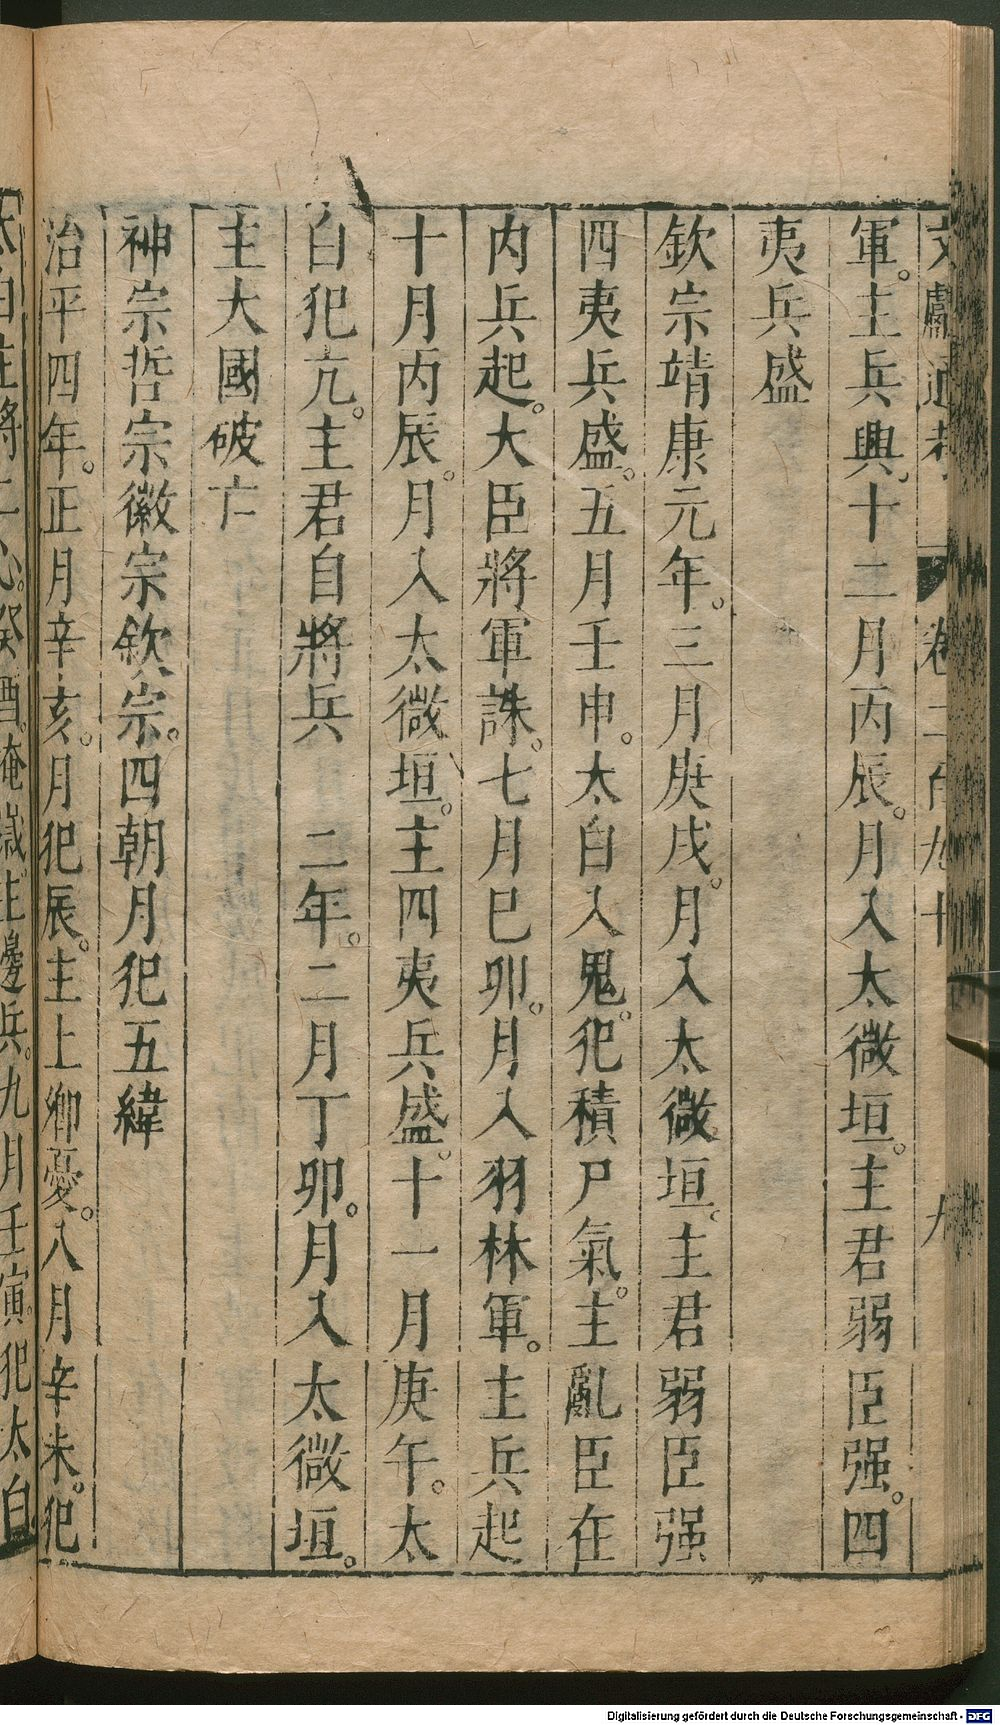 文獻通考 卷二百九十 九
軍。主兵興。十二月丙辰。月入太微垣。主君弱臣强。四
夷兵盛
欽宗靖康元年。三月庚戌。月入太微垣。主君弱臣强
四夷兵盛。五月壬申。太白入鬼。犯積尸氣。主亂臣在
内兵起。大臣將軍誅。七月巳卯。月入羽林軍。主兵起
十月丙辰。月入太微垣。主四夷兵盛。十一月庚午。太
白犯亢。主君自將兵 二年。二月丁卯。月入太微垣。
主大國破亡
神宗哲宗徽宗欽宗。四朝月犯五緯
治平四年。正月辛亥。月犯辰。主上卿憂。八月辛未。犯
太白在將 心。癸酉。掩歲。主邊兵。九月壬寅。犯太白
Digitalisierung gefördert durch die Deutsche Forschungsgemeinschaft - DFG